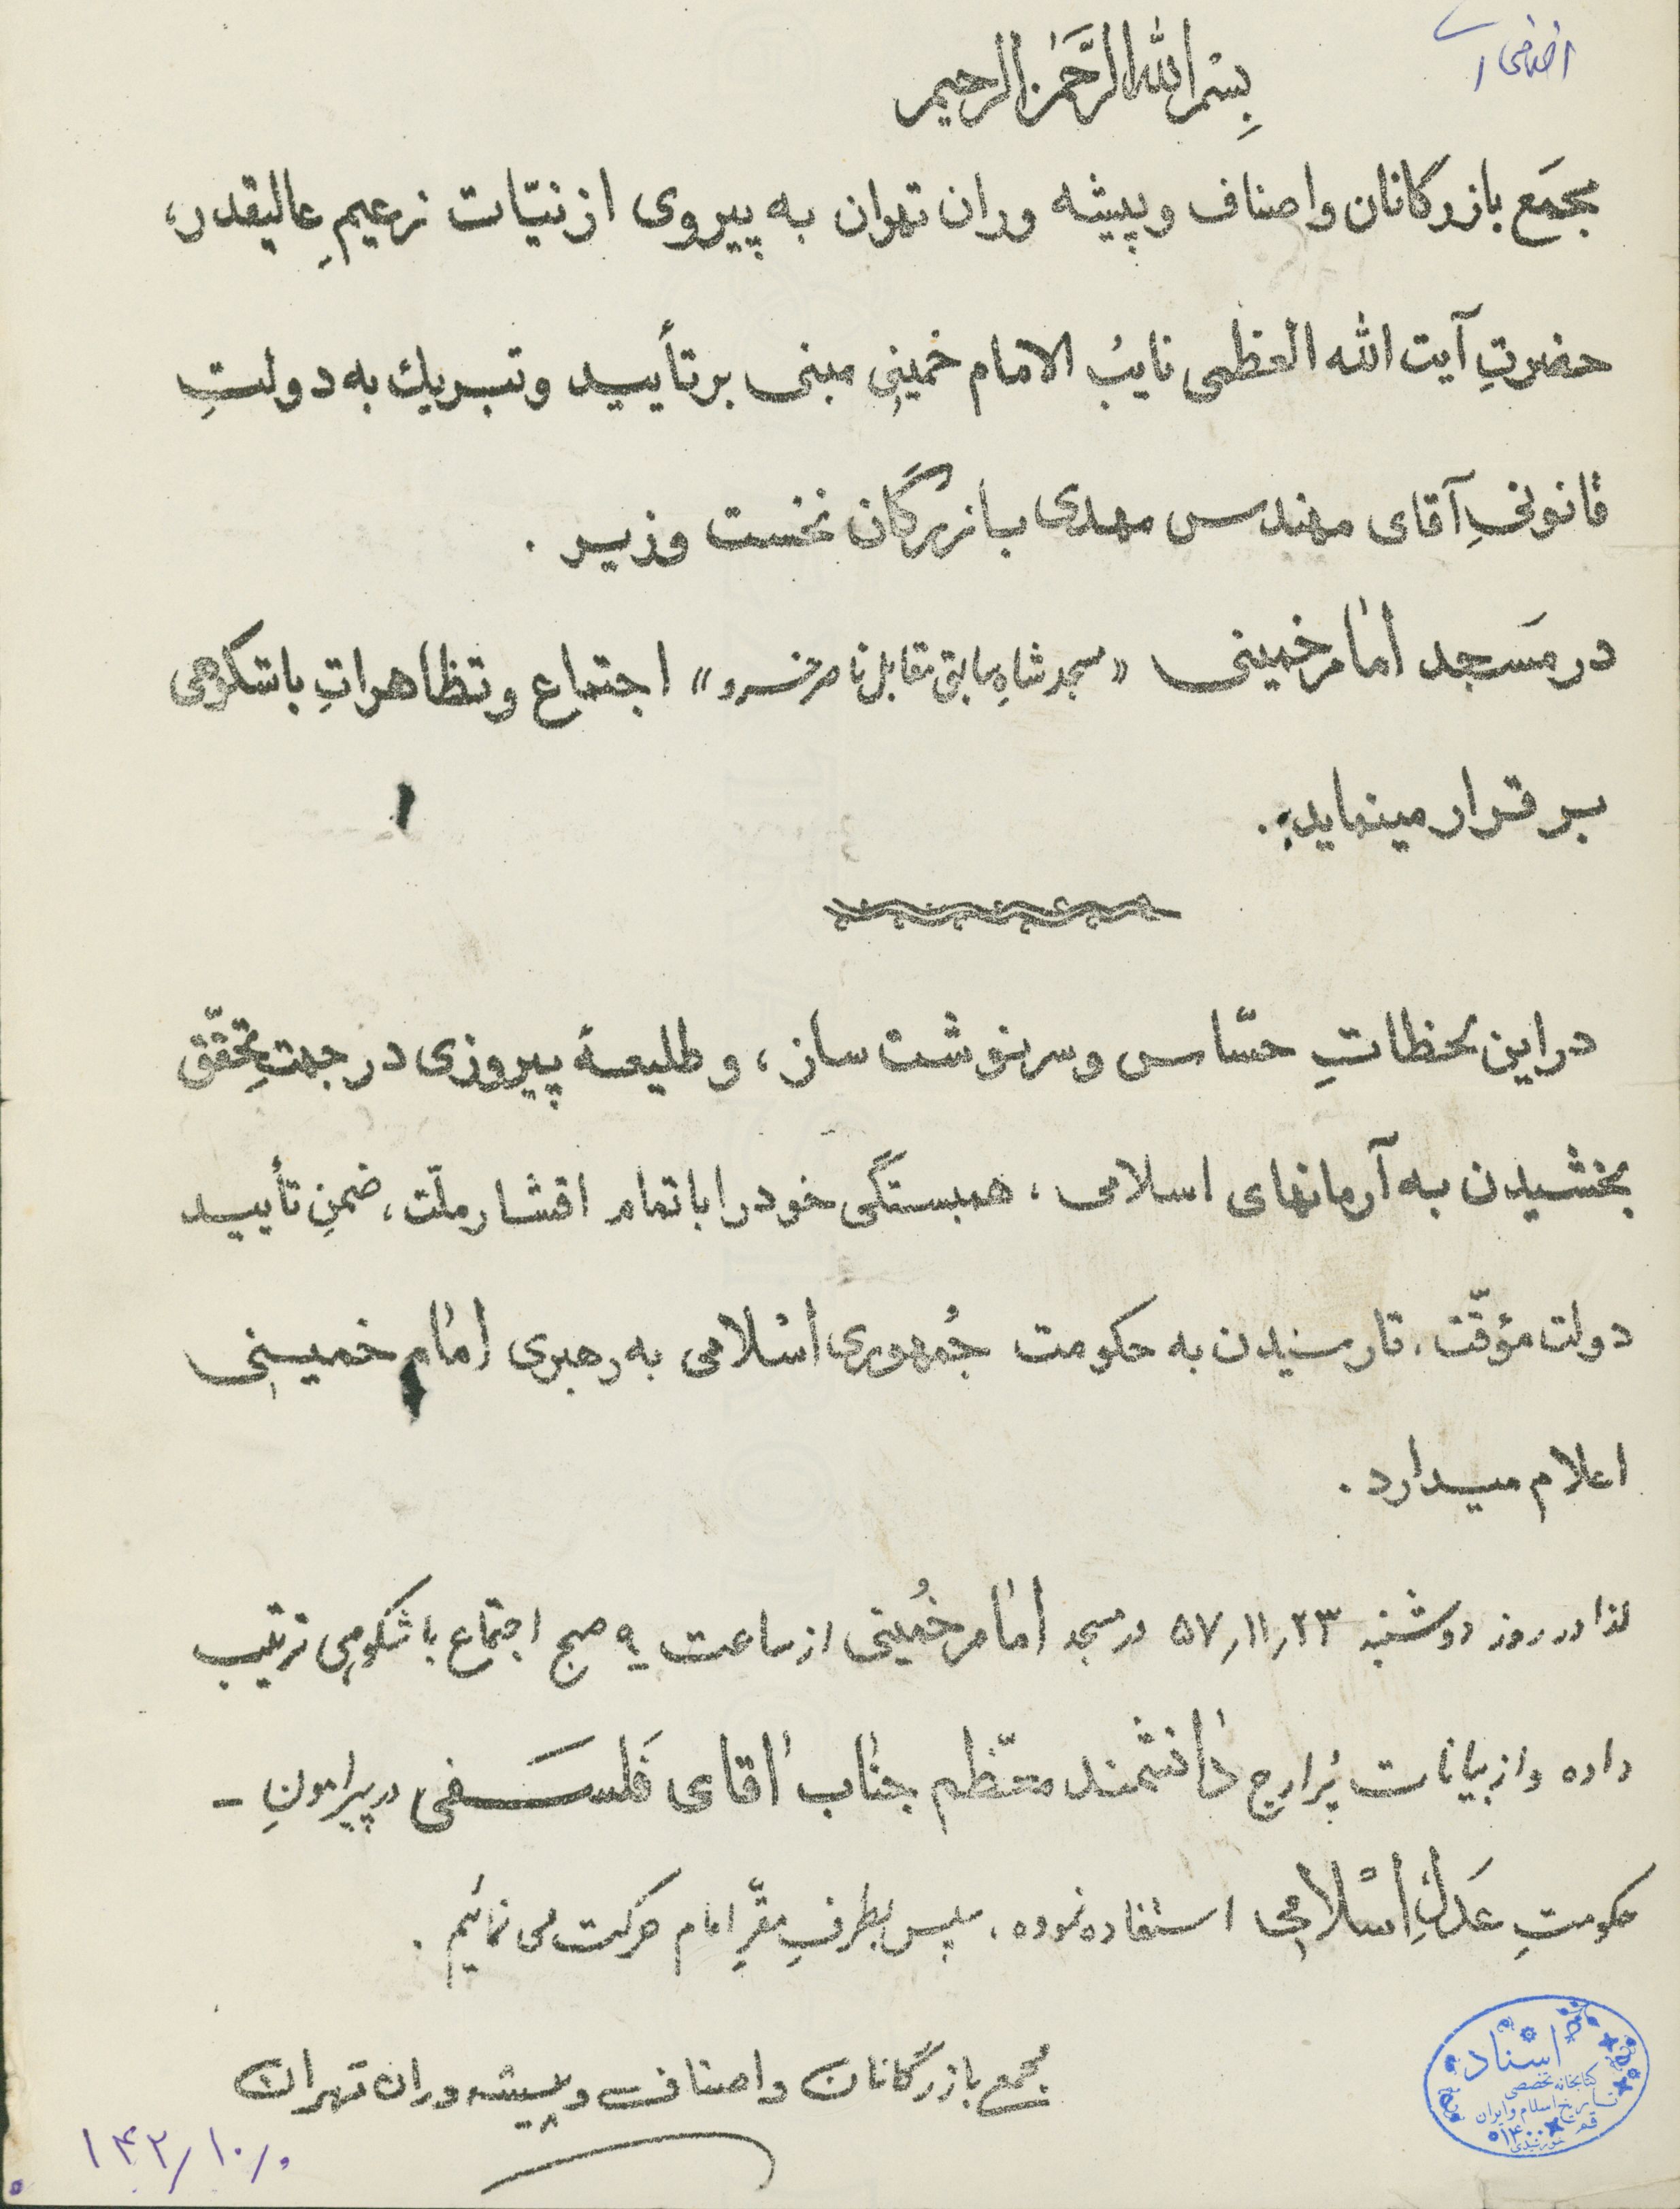 بِسْمِ اللّٰهِ الرَّحْمٰنِ الرحیم
مجمَع بازرگانان واصناف وپیشه وران تهران به پیروی از نیّات زعیمِ عالیقدر،
حضرتِ آیت الله العظمی نایبُ الامام خمینی مبنی برتأیید وتبریك به دولتِ
قانونیِ آقای مهندس مهدی بازرگان نخست وزیر .
در مَسجد امام خمینی «مسجد شاهِ سابق مقابل ناصرخسرو» اجتماع وتظاهراتِ باشکوهی
برقرار مینماید.
دراین لحظاتِ حسّاس وسرنوشت ساز، وطلیعهٔ پیروزی درجهتِ تحقّق
بخشیدن به آرمانهای اسلامی، همبستگی خودرا باتمام اقشار ملّت، ضمنِ تأیید
دولت مؤقّت، تارسیدن به حکومت جُمهوری اسْلامی به رهبری امام خمینی
اعلام میدارد.
لذا در روز دوشنبه ۵۷/۱۱/۲۳ در مسجد امام خُمینی از ساعت ۹ صبح اجتماع باشکوهی ترتیب
داده و از بیانات پُرارج دانشمند معظّم جناب آقای فَلسَفی در پیرامونِ -
حکومتِ عَدلِ اسْلامی استفاده نموده، سپس بطرفِ مقرِّ امام حرکت می نمائیم .
مجمع بازرگانان واصناف وپیشه وران تهران
اسناد
کتابخانه تخصصی
تاریخ اسلام و ایران
قم
۱۴۲/۱۰/۰